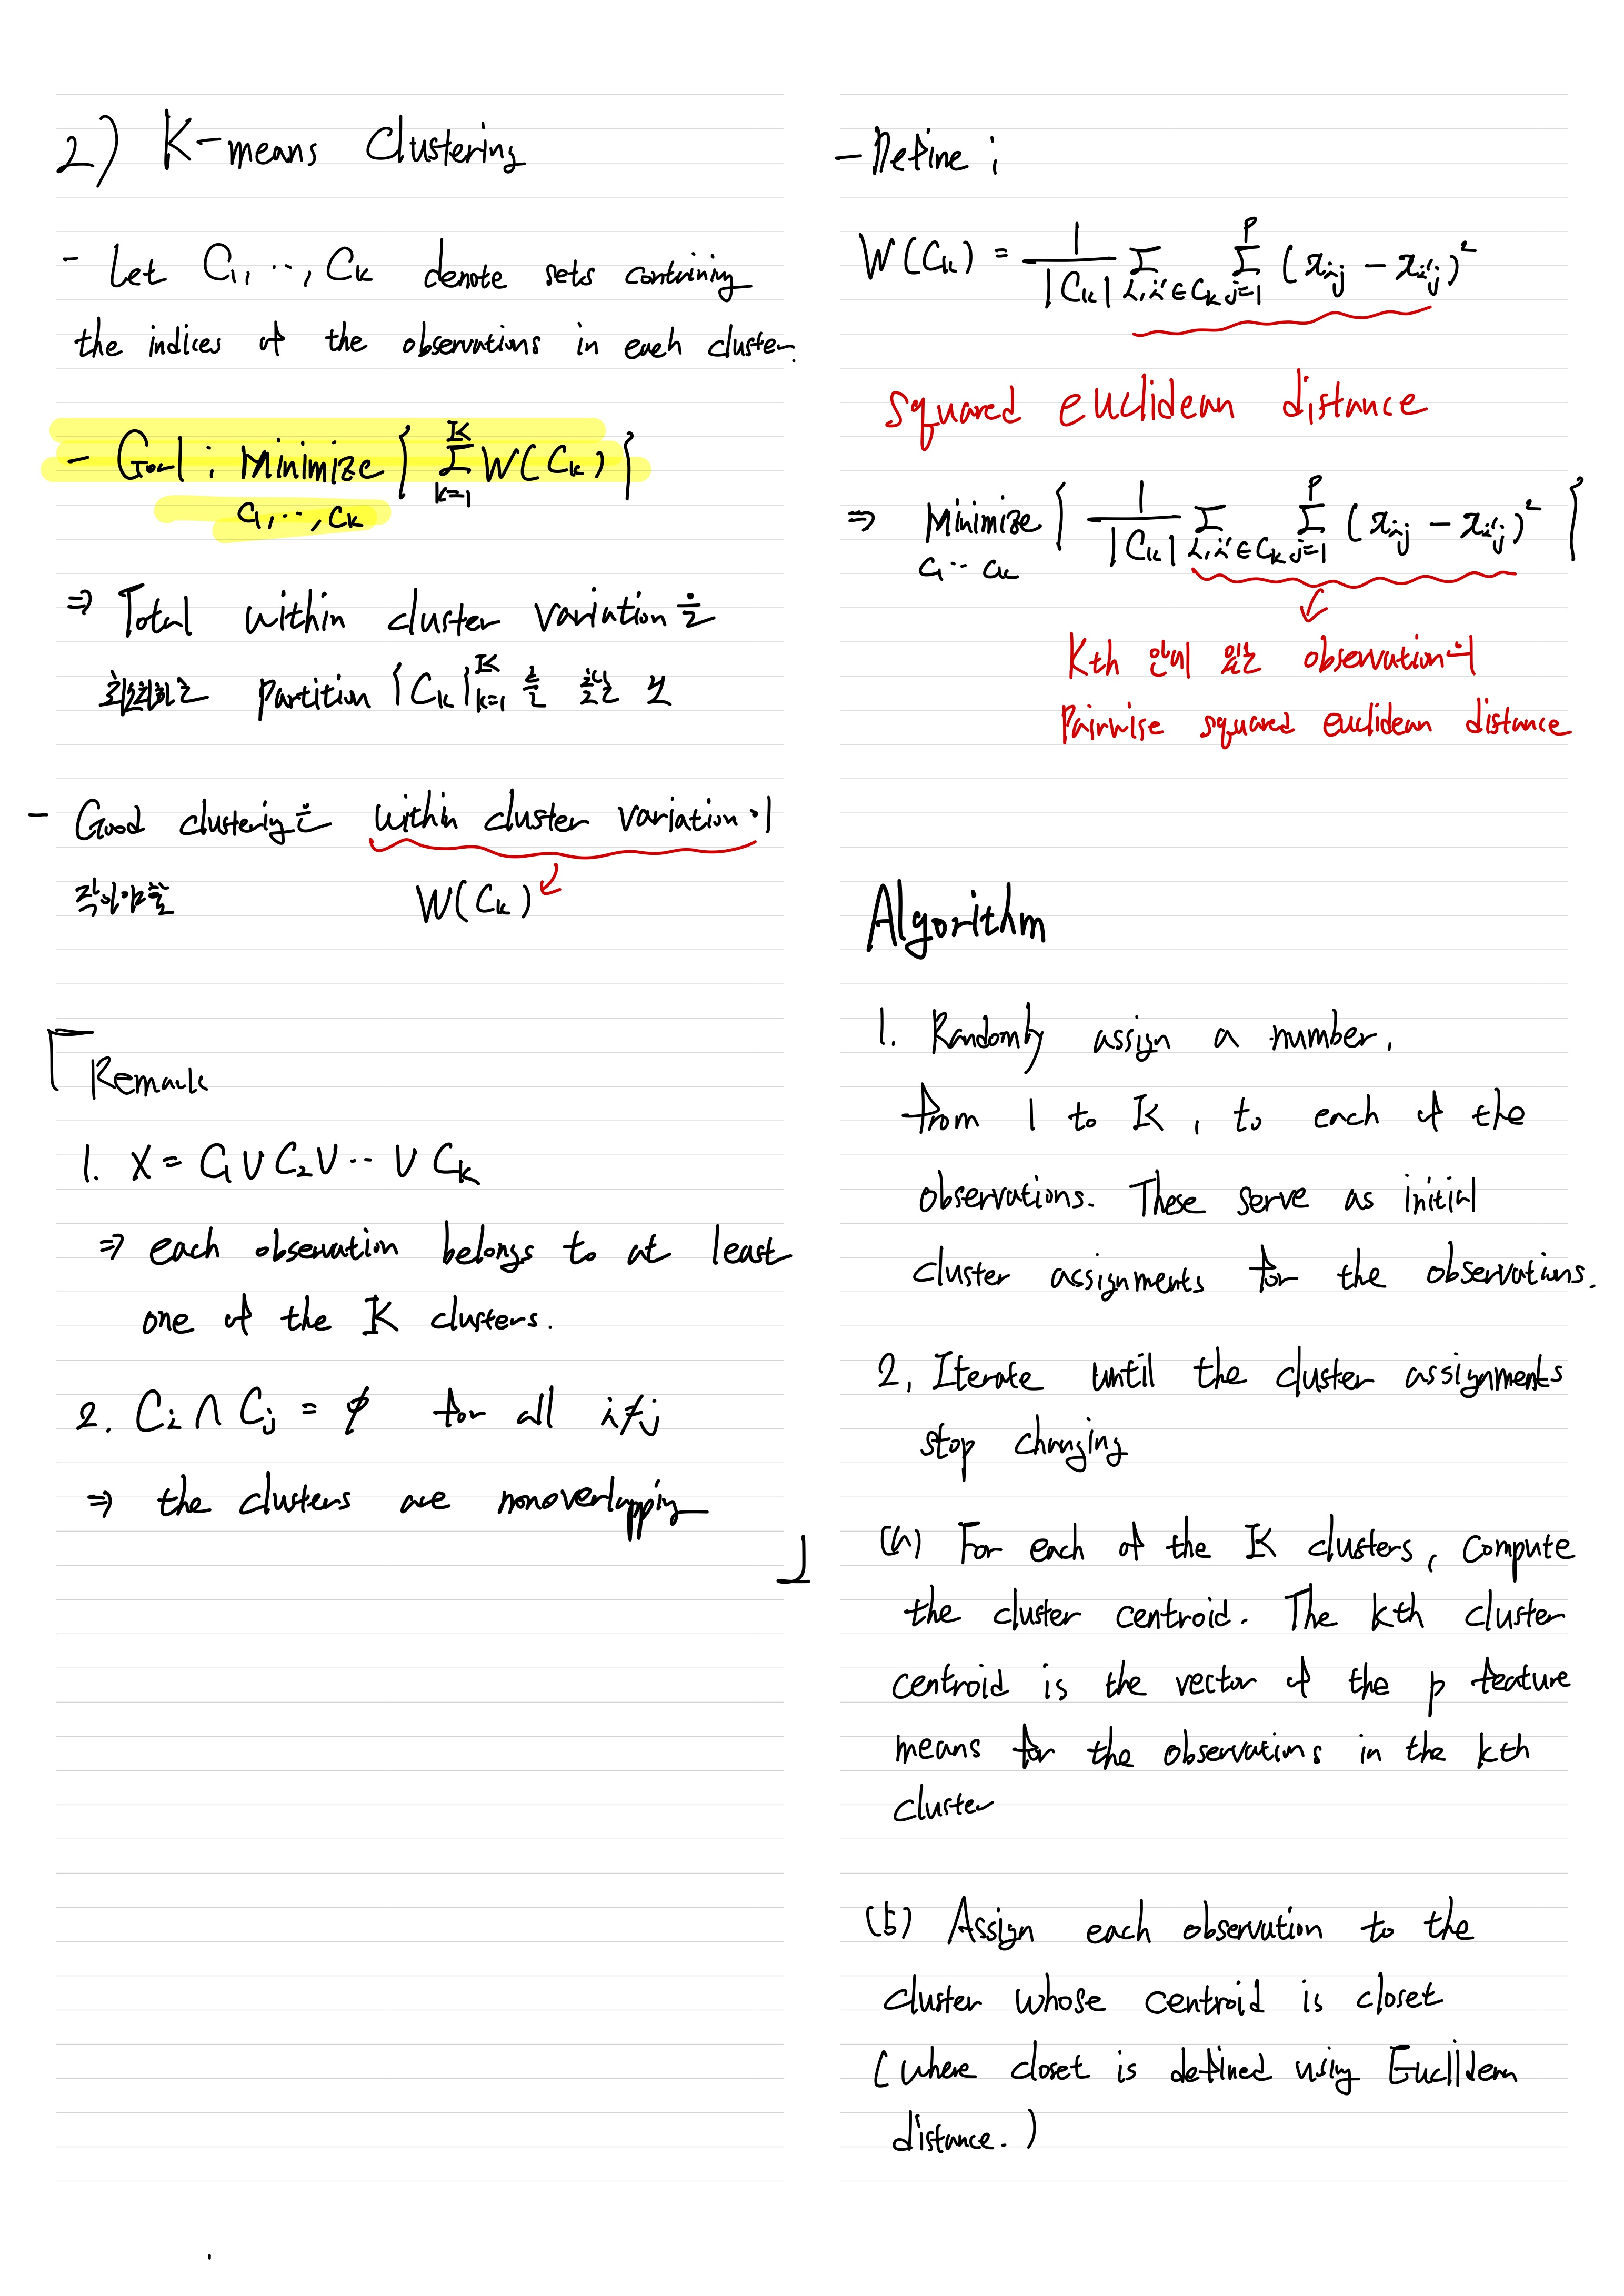 2) K-means Clustering
- Let C₁, ‥, Cₖ denote sets containing
the indices of the observations in each cluster.
- Goal : Minimize { Σ W(Cₖ) }
K
k=1
C₁, ‥, Cₖ
⇒ Total within cluster variation을
최소화하는 partition {Cₖ}ᴷₖ₌₁ 를 찾는 것
- Good clustering은 within cluster variation이
작아야함
W(Cₖ)
Remark
1. X = C₁ ∪ C₂ ∪ ‥ ∪ Cₖ
⇒ each observation belongs to at least
one of the K clusters.
2. Cᵢ ∩ Cⱼ = ∅ for all i≠j
⇒ the clusters are nonoverlapping
- Define ;
W(Cₖ) = 1/|Cₖ| Σ_{i,i'∈Cₖ} Σ_{j=1}^{p} (xᵢⱼ - xᵢ'ⱼ)²
squared euclidean distance
⇒ Minimize { 1/|Cₖ| Σ_{i,i'∈Cₖ} Σ_{j=1}^{p} (xᵢⱼ - xᵢ'ⱼ)² }
C₁ ‥ Cₖ
Kth 안에 있는 observation의
Pairwise squared euclidean distance
Algorithm
1. Randomly assign a number,
from 1 to K, to each of the
observations. These serve as initial
cluster assignments for the observations.
2. Iterate until the cluster assignments
stop changing
(a) For each of the K clusters, compute
the cluster centroid. The kth cluster
centroid is the vector of the p feature
means for the observations in the kth
cluster
(b) Assign each observation to the
cluster whose centroid is closet
(where closet is defined using Euclidean
distance.)